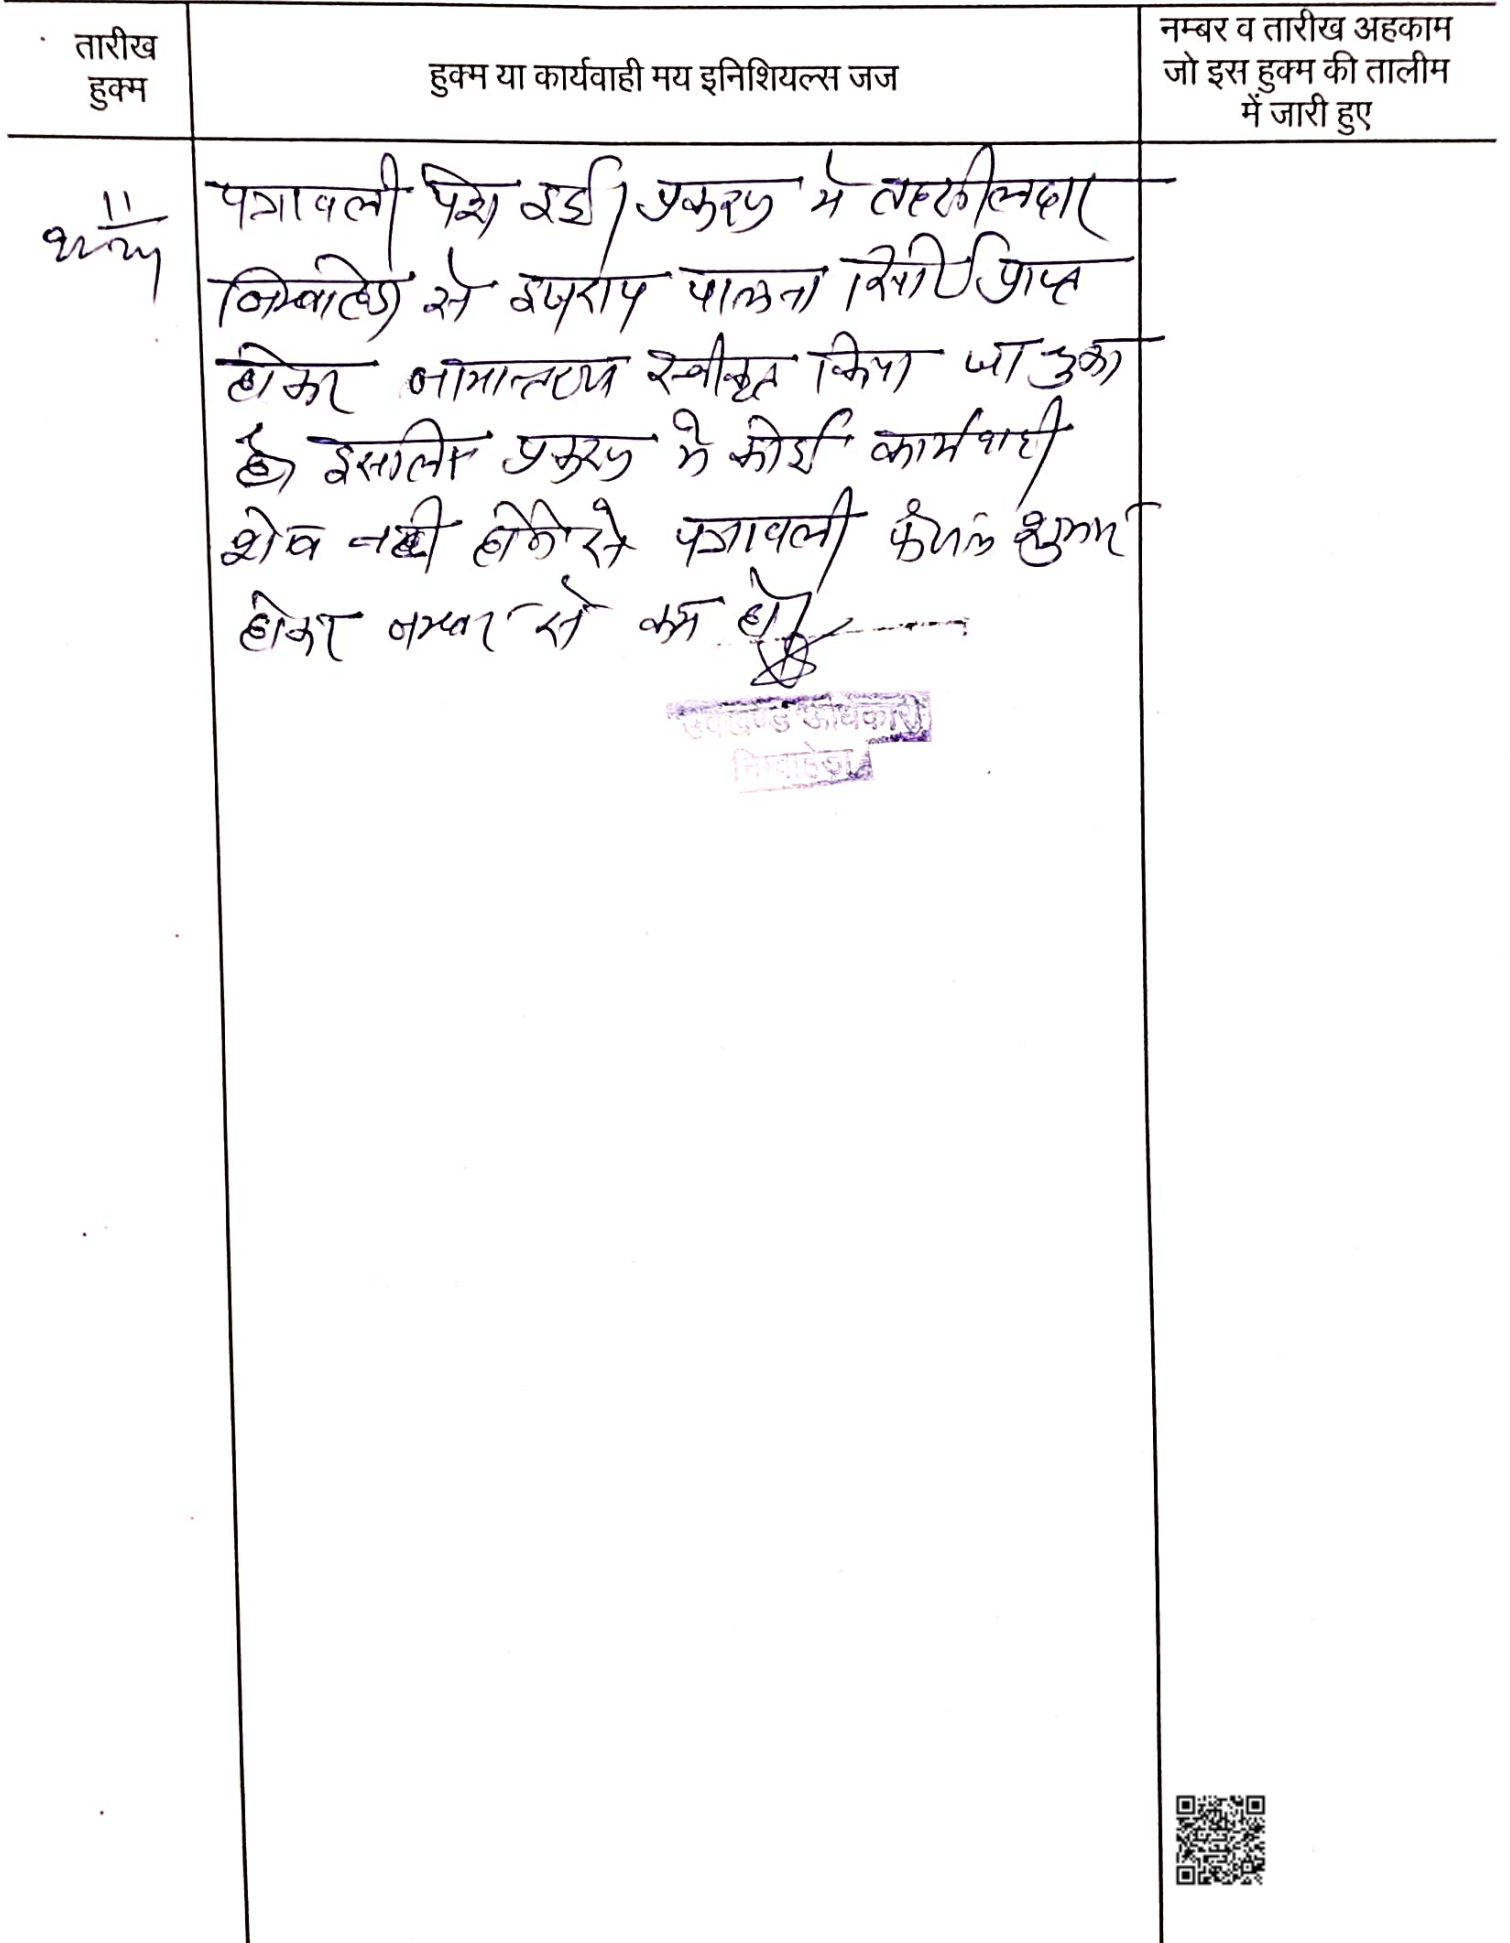 तारीख
हुक्म
हुक्म या कार्यवाही मय इनिशियल्स जज
नम्बर व तारीख अहकाम
जो इस हुक्म की तालीम
में जारी हुए
11
पत्रावली पेश हुई। प्रकरण मे तहसीलदार
निम्बाहेडा से इजराय पालना रिपोर्ट प्राप्त
होकर नामान्तरण स्वीकृत किया जा चुका
है इसलिए प्रकरण मे कोई कार्यवाही
शेष नही होने से पत्रावली फैसल शुमार
होकर नम्बर से कम हो।
उपखण्ड अधिकारी
निम्बाहेडा